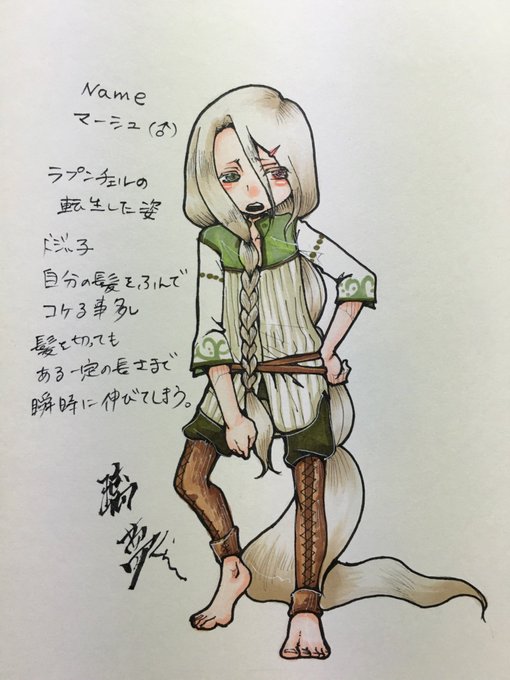 Name
マーシュ(♂)
ラプンチェルの
転生した姿
ドジッ子
自分の髪をふんで
コケる事多し
髪を切っても
ある一定の長さまで
瞬時に伸びてしまう。